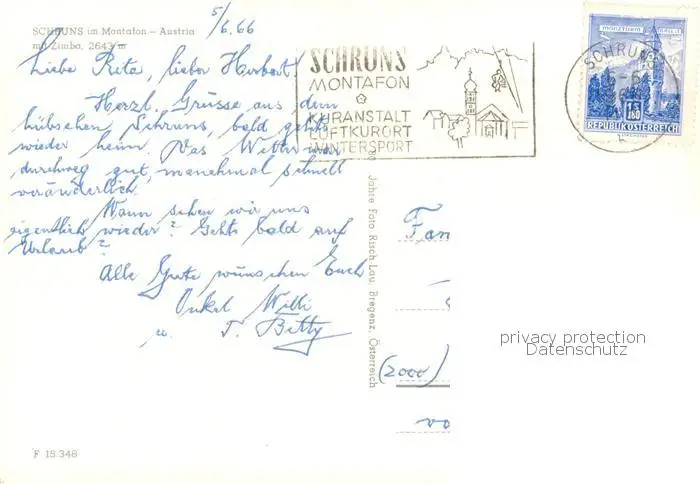 5/6.66
SCHRUNS im Montafon - Austria
mit Zimba, 2643 m
Liebe Reta, lieber Herbert!
Herzl. Grüsse aus dem
hübschen Schruns, bald geht's
wieder heim. Das Wetter war
durchweg gut, manchmal schnell
veränderlich.
Wann sehen wir uns
eigentlich wieder? Gehts bald auf
Urlaub?
Alle Gute wünschen Euch
Onkel Willi
u. T. Betty
F 15.348
SCHRUNS
MONTAFON
KURANSTALT
LUFTKURORT
WINTERSPORT
SCHRUNS
REPUBLIK ÖSTERREICH
Jahre Foto Risch-Lau, Bregenz, Österreich
Fam
(2000)
privacy protection
Datenschutz